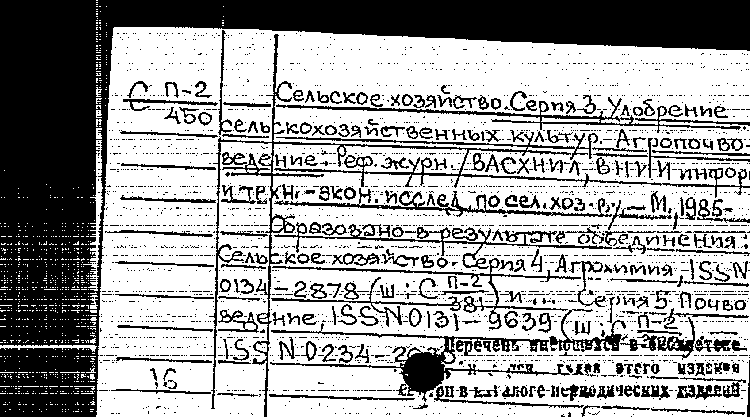 С П-2
450
Сельское хозяйство. Серия 3, Удобрение
сельскохозяйственных культур. Агропочво-
ведение: Реф. журн. / ВАСХНИЛ, ВНИИ инфор
и техн.-экон. исслед. по сел. хоз-ву. – М., 1985-
Образовано в результате объединения:
Сельское хозяйство. Серия 4, Агрохимия, ISSN
0134-2878 (Ш: С П-2/381) и ... Серия 5 Почво
ведение, ISSN 0131-9639 (Ш: С П-2
ISSN 0234-
Перечень имеющихся в библиотеке
и годах этого издания
в каталоге периодических изданий
16